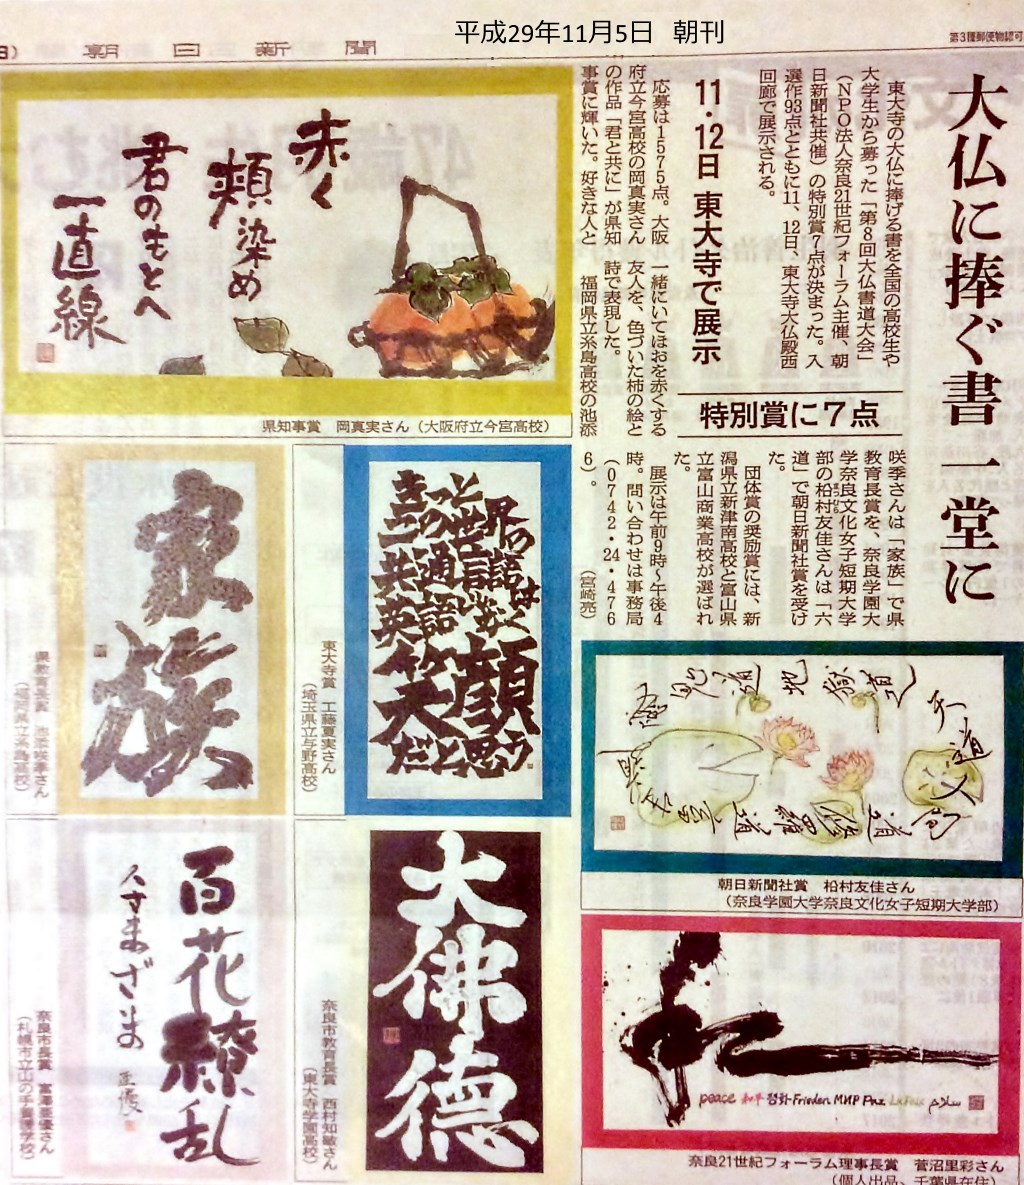 平成29年11月5日 朝刊
朝日新聞
第3種郵便物認可
大仏に捧ぐ書一堂に
11・12日 東大寺で展示
特別賞に7点
東大寺の大仏に捧げる書を全国の高校生や
大学生から募った「第8回大仏書道大会」
(NPO法人奈良21世紀フォーラム主催、朝
日新聞社共催)の特別賞7点が決まった。入
選作93点とともに11、12日、東大寺大仏殿西
回廊で展示される。
応募は1575点。大阪
府立今宮高校の岡真実さん
の作品「君と共に」が県知
事賞に輝いた。好きな人と
一緒にいてほおを赤くする
友人を、色づいた柿の絵と
詩で表現した。
福岡県立糸島高校の池添
咲季さんは「家族」で県
教育長賞を、奈良学園大
学奈良文化女子短期大学
部の松村友佳さんは「六
道」で朝日新聞社賞を受け
た。
団体賞の奨励賞には、新
潟県立新津南高校と富山県
立富山商業高校が選ばれ
た。
展示は午前9時~午後4
時。問い合わせは事務局
(0742・24・476
6)。
(宮崎亮)
赤く
頬染め
君のもとへ
一直線
県知事賞 岡真実さん(大阪府立今宮高校)
家族
県教育長賞 池添咲季さん
(福岡県立糸島高校)
きっと世界の
三つの世
共通言語は
英語じゃなく
笑顔
だと思う
東大寺賞 工藤夏実さん
(埼玉県立与野高校)
天道
地獄道
修羅道
朝日新聞社賞 松村友佳さん
(奈良学園大学奈良文化女子短期大学部)
百花繚乱
人さまざま
奈良市長賞 富澤亜優さん
(札幌市立山の手養護学校)
大佛徳
奈良市教育長賞 西村知敏さん
(東大寺学園高校)
peace 和平 평화 Frieden МИР Paz La Paix سلام
奈良21世紀フォーラム理事長賞 菅沼里彩さん
(個人出品、千葉県在住)